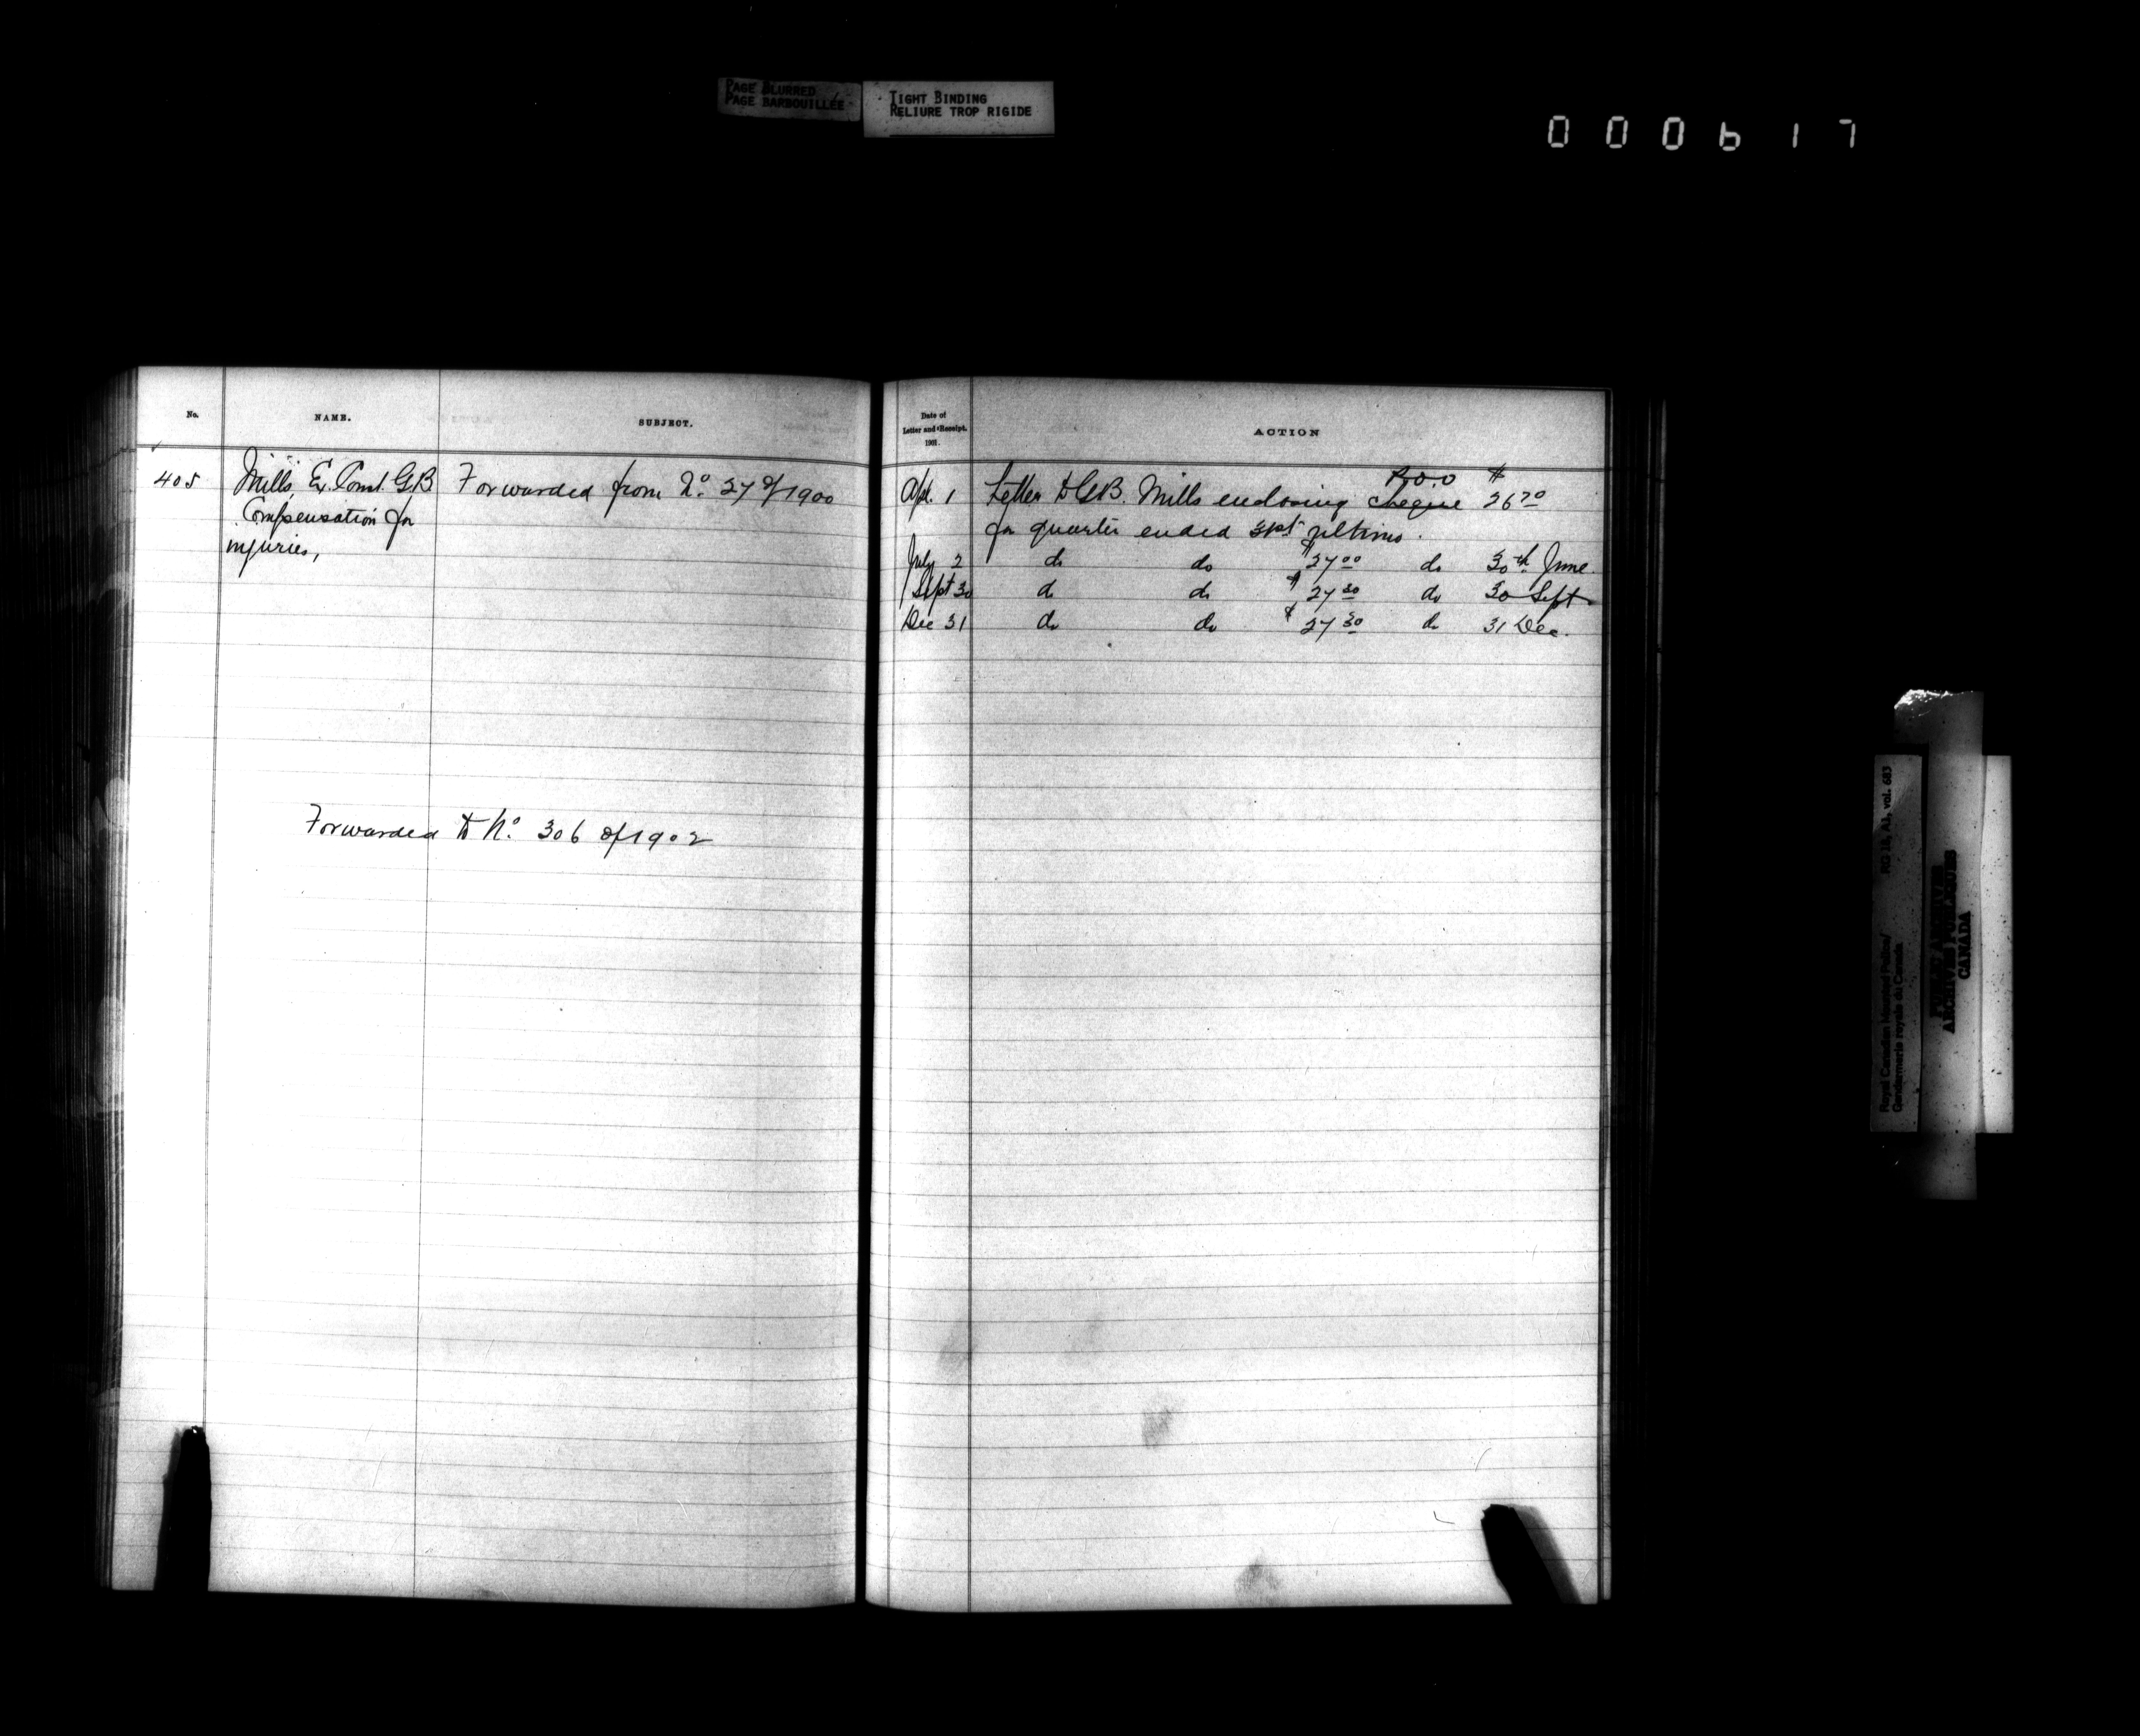 PAGE BLURRED
PAGE BARBOUILLÉE
TIGHT BINDING
RELIURE TROP RIGIDE
000617
No.
NAME.
SUBJECT.
405
Mills, Ex. Const. G.B
Compensation for
injuries,
Forwarded from No. 27 of 1900
Forwarded to No. 306 of 1902
Date of
Letter and Receipt.
1901.
ACTION
P.O.O $
Apl. 1 Letter to G.B. Mills enclosing cheque 26 70
for quarter ended 31st ultimo.
July 2 do do $27 00 do 30th June.
Sept 30 do do $27 30 do 30 Sept
Dec 31 do do $27 30 do 31 Dec.
Royal Canadian Mounted Police/
Gendarmerie royale du Canada
RG 18, A1, vol. 683
PUBLIC ARCHIVES
ARCHIVES PUBLIQUES
CANADA